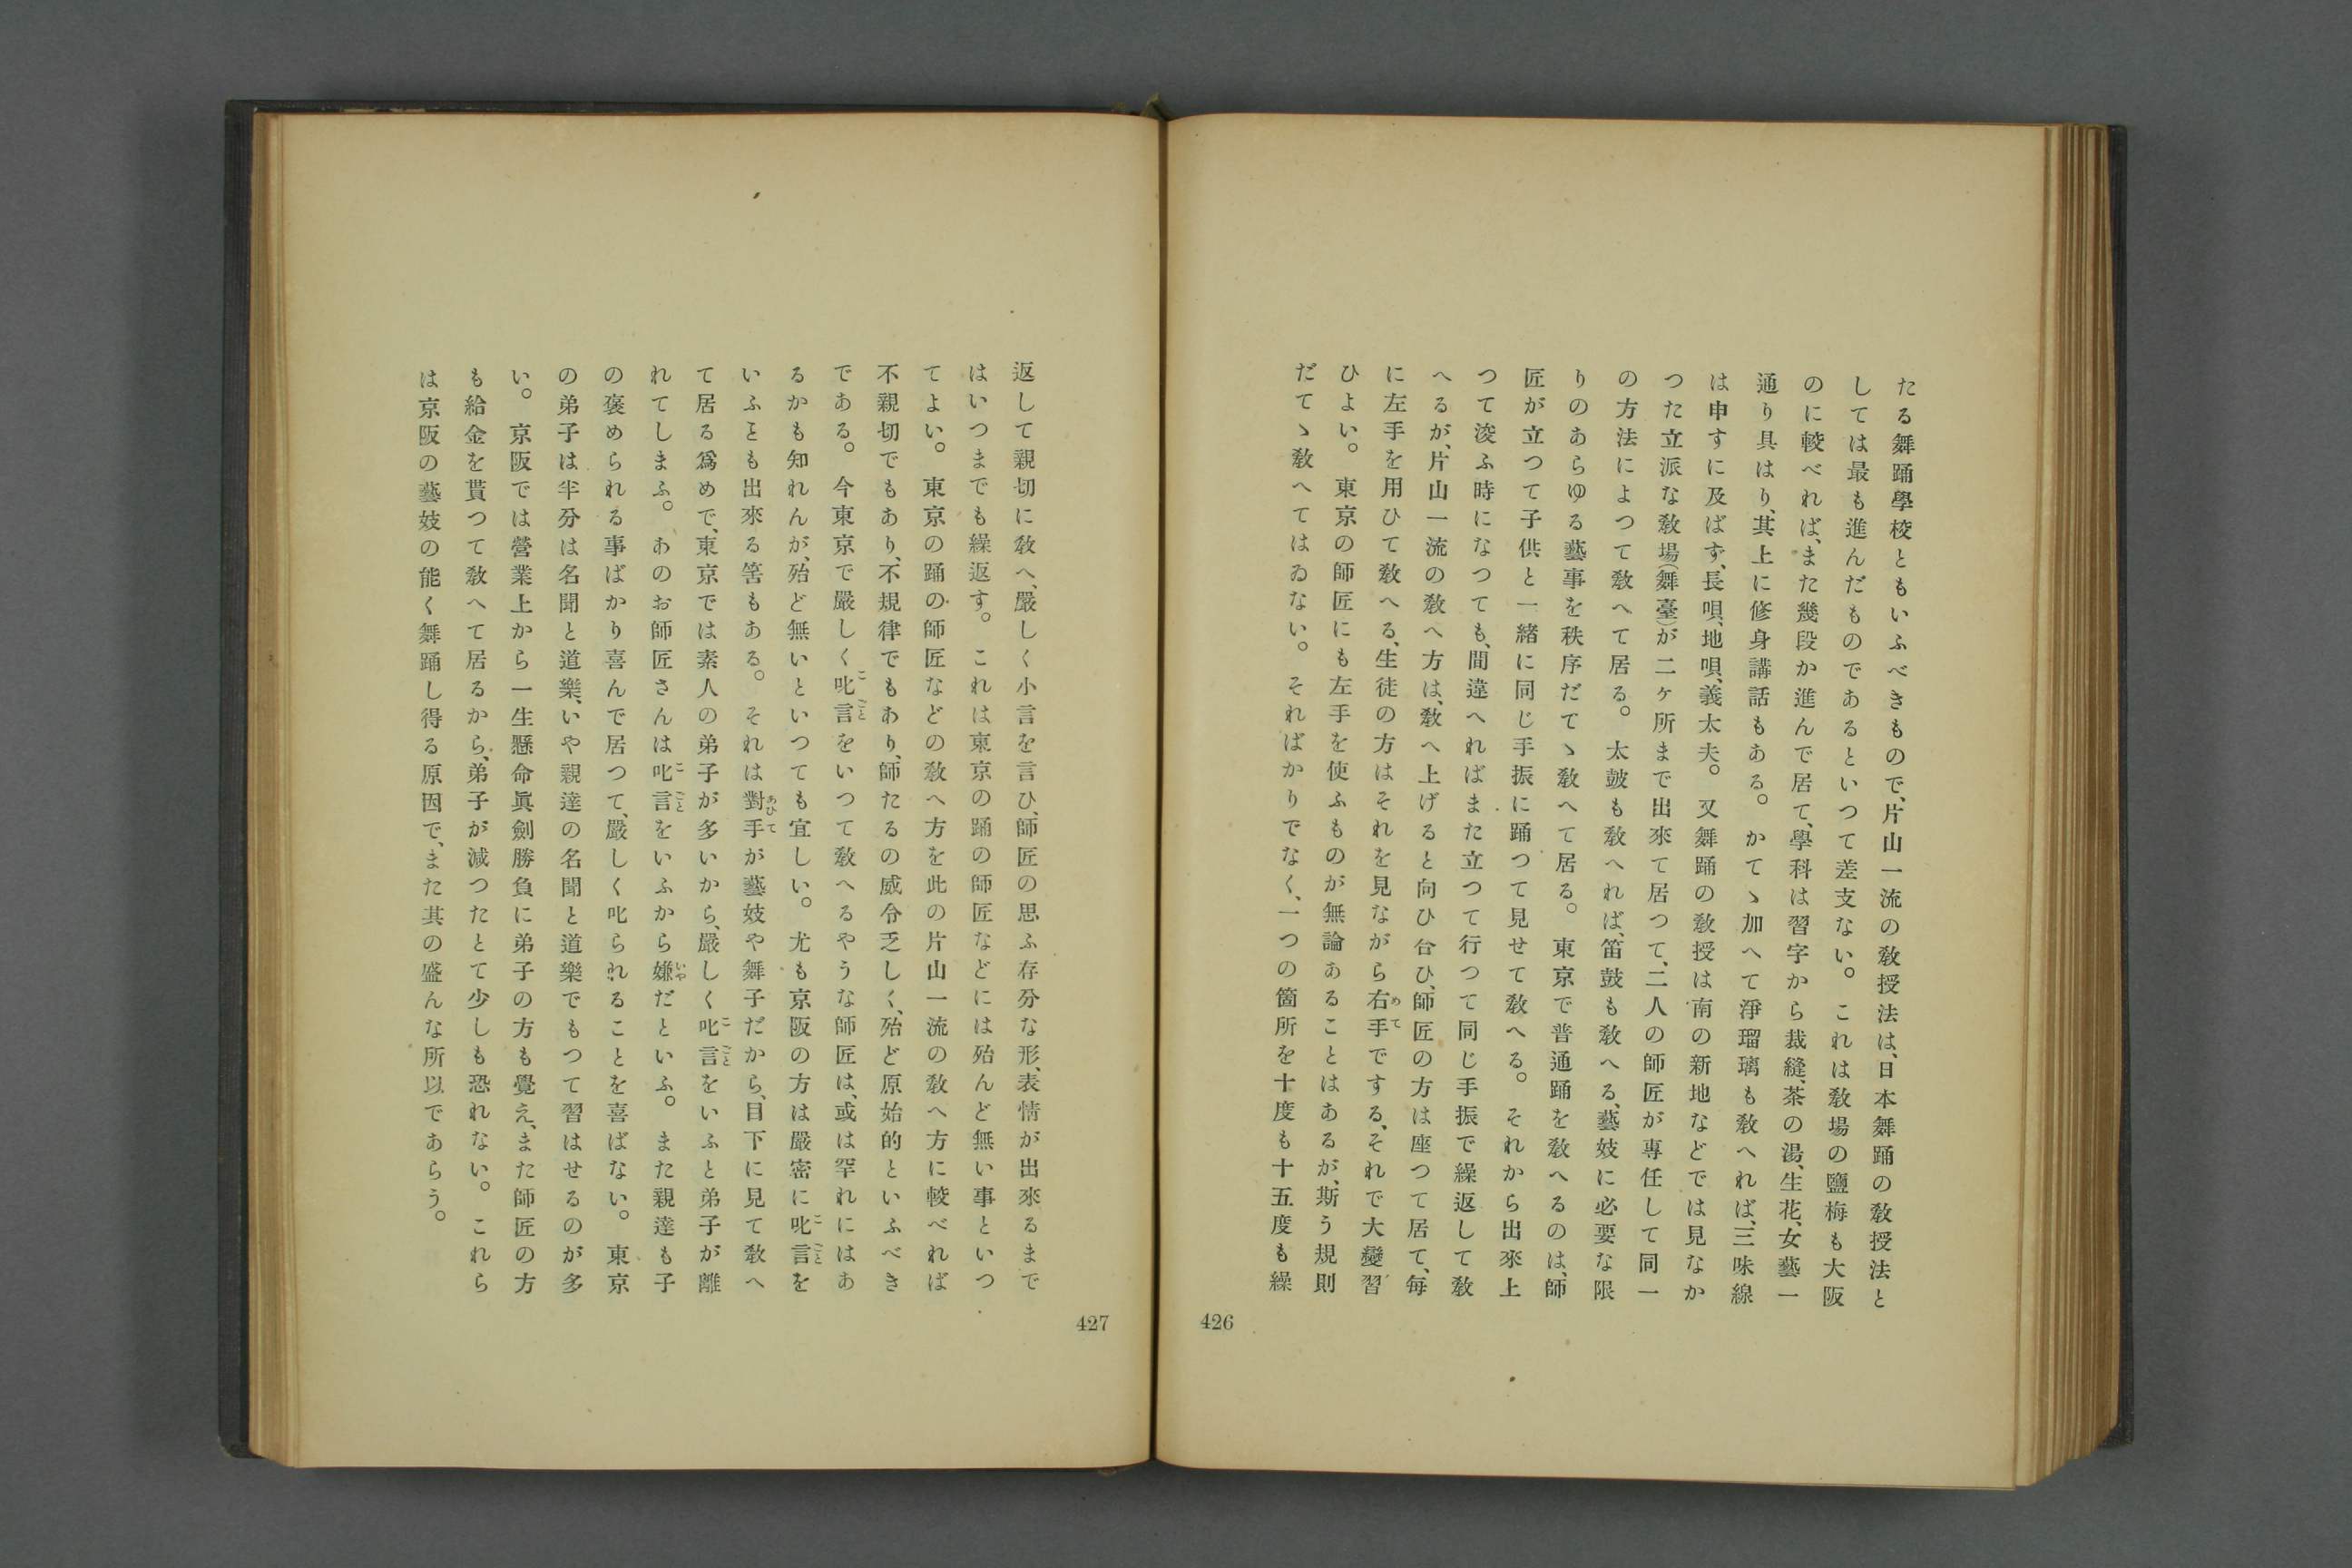 たる舞踊學校ともいふべきもので、片山一流の敎授法は、日本舞踊の敎授法と
しては最も進んだものであるといつて差支ない。これは敎場の鹽梅も大阪
のに較べれば、また幾段か進んで居て、學科は習字から裁縫、茶の湯、生花、女藝一
通り具はり、其上に修身講話もある。かてゝ加へて淨瑠璃も敎へれば、三味線
は申すに及ばず、長唄、地唄、義太夫。又舞踊の敎授は南の新地などでは見なか
つた立派な敎場(舞臺)が二ヶ所まで出來て居つて、二人の師匠が專任して同一
の方法によつて敎へて居る。太皷も敎へれば、笛鼓も敎へる、藝妓に必要な限
りのあらゆる藝事を秩序だてゝ敎へて居る。東京で普通踊を敎へるのは、師
匠が立つて子供と一緒に同じ手振に踊つて見せて敎へる。それから出來上
つて浚ふ時になつても、間違へればまた立つて行つて同じ手振で繰返して敎
へるが、片山一流の敎へ方は、敎へ上げると向ひ合ひ、師匠の方は座つて居て、每
に左手を用ひて敎へる、生徒の方はそれを見ながら右手でする、それで大變習
ひよい。東京の師匠にも左手を使ふものが無論あることはあるが、斯う規則
だてゝ敎へてはゐない。そればかりでなく、一つの箇所を十度も十五度も繰
426
返して親切に敎へ、嚴しく小言を言ひ、師匠の思ふ存分な形、表情が出來るまで
はいつまでも繰返す。これは東京の踊の師匠などには殆んど無い事といつ
てよい。東京の踊の師匠などの敎へ方を此の片山一流の敎へ方に較べれば
不親切でもあり、不規律でもあり、師たるの威令乏しく、殆ど原始的といふべき
である。今東京で嚴しく叱言をいつて敎へるやうな師匠は、或は罕れにはあ
るかも知れんが、殆ど無いといつても宜しい。尤も京阪の方は嚴密に叱言を
いふとも出來る筈もある。それは對手が藝妓や舞子だから、目下に見て敎へ
て居る爲めで、東京では素人の弟子が多いから、嚴しく叱言をいふと弟子が離
れてしまふ。あのお師匠さんは叱言をいふから嫌だといふ。また親達も子
の褒められる事ばかり喜んで居つて、嚴しく叱られることを喜ばない。東京
の弟子は半分は名聞と道樂、いや親達の名聞と道樂でもつて習はせるのが多
い。京阪では營業上から一生懸命眞劍勝負に弟子の方も覺え、また師匠の方
も給金を貰つて敎へて居るから、弟子が減つたとて少しも恐れない。これら
は京阪の藝妓の能く舞踊し得る原因で、また其の盛んな所以であらう。
427